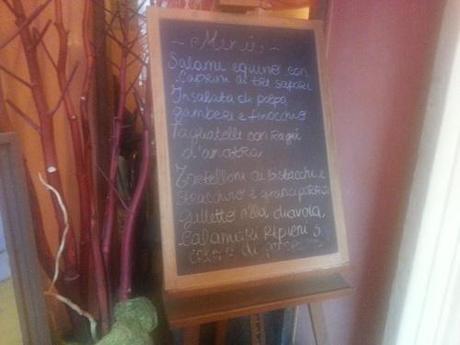 - Menù -
Salami equino con
caprini ai tre sapori
Insalata di polpo
gamberi e finocchio
Tagliatelle con Ragù
d'anatra
Tortelloni ai pistacchi e
stracchino e
Galletto alla diavola
Calamari Ripieni
di